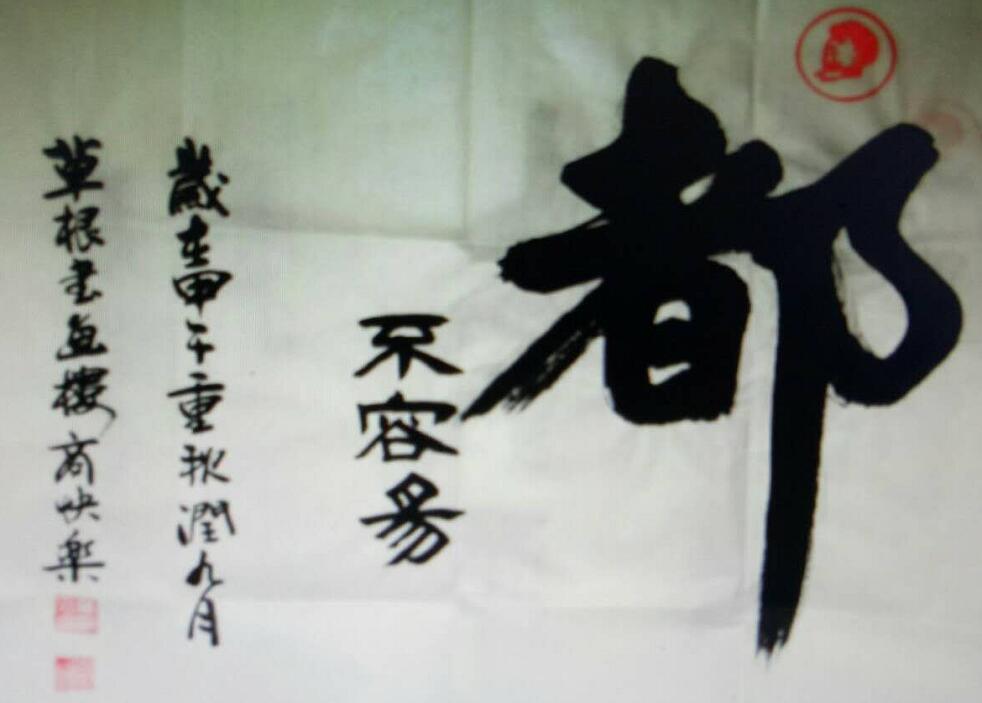 都
不容易
歲在甲午重秋潤九月
草根書畫樓商快樂